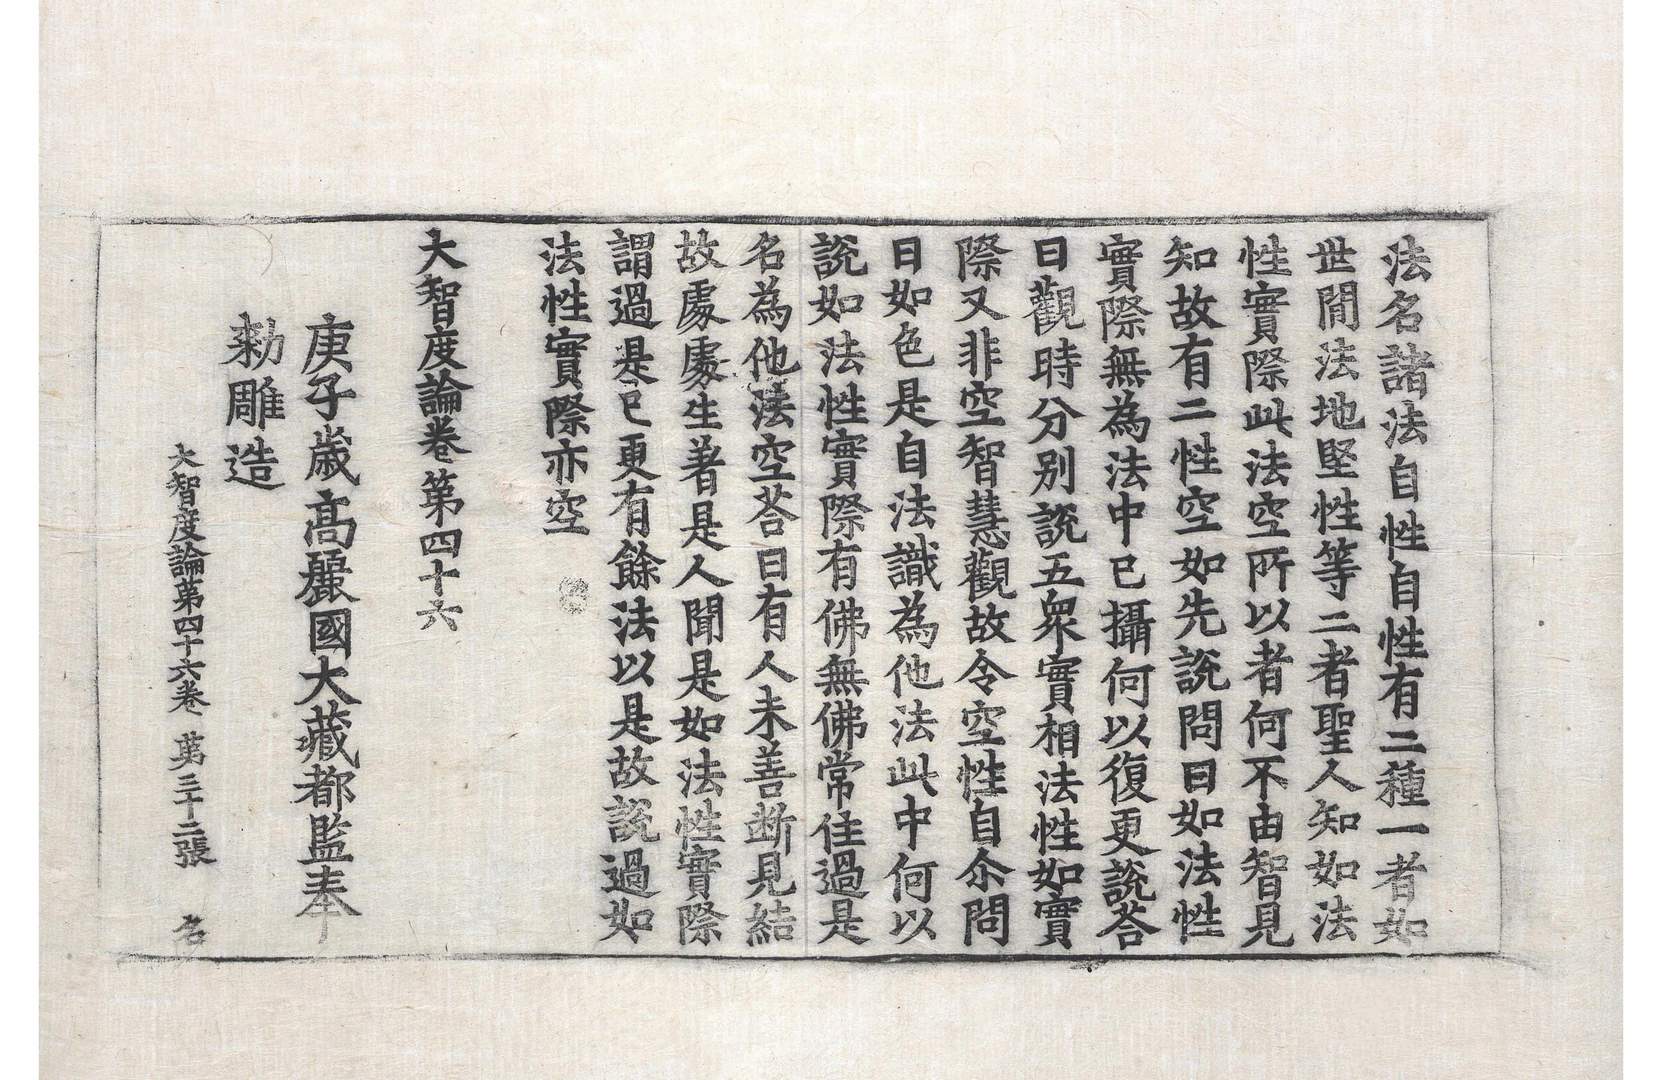 法名諸法自性自性有二種一者如
世閒法地堅性等二者聖人知如法
性實際此法空所以者何不由智見
知故有二性空如先說問曰如法性
實際無為法中已攝何以復更說荅
曰觀時分別說五衆實相法性如實
際又非空智慧觀故令空性自尒問
曰如色是自法識為他法此中何以
說如法性實際有佛無佛常住過是
名為他法空荅曰有人未善斷見結
故處處生著是人聞是如法性實際
謂過是已更有餘法以是故說過如
法性實際亦空
大智度論卷第四十六
庚子歲高麗國大藏都監奉
勑雕造
大智度論第四十六卷 第三十二張 名